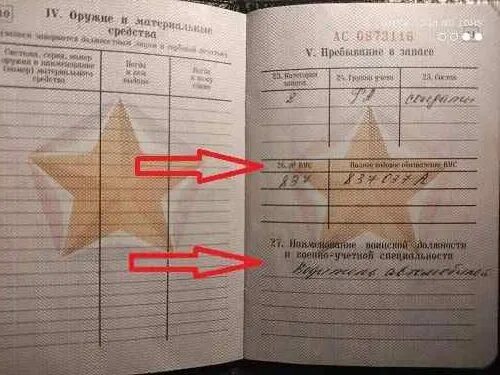 10
IV. Оружие и материальные
средства
Система, серия, номер
оружия и наименование
(номер) материального
средства
Когда
и кем
выдано
Когда
и кому
сдано
АС 0873116
V. Пребывание в запасе
23. Категория
запаса
24. Группа учета
25. Состав
2
РА
солдаты
26. № ВУС
Полное кодовое обозначение ВУС
837
837037А
27. Наименование воинской должности
и военно-учетной специальности
Водитель автомобилей